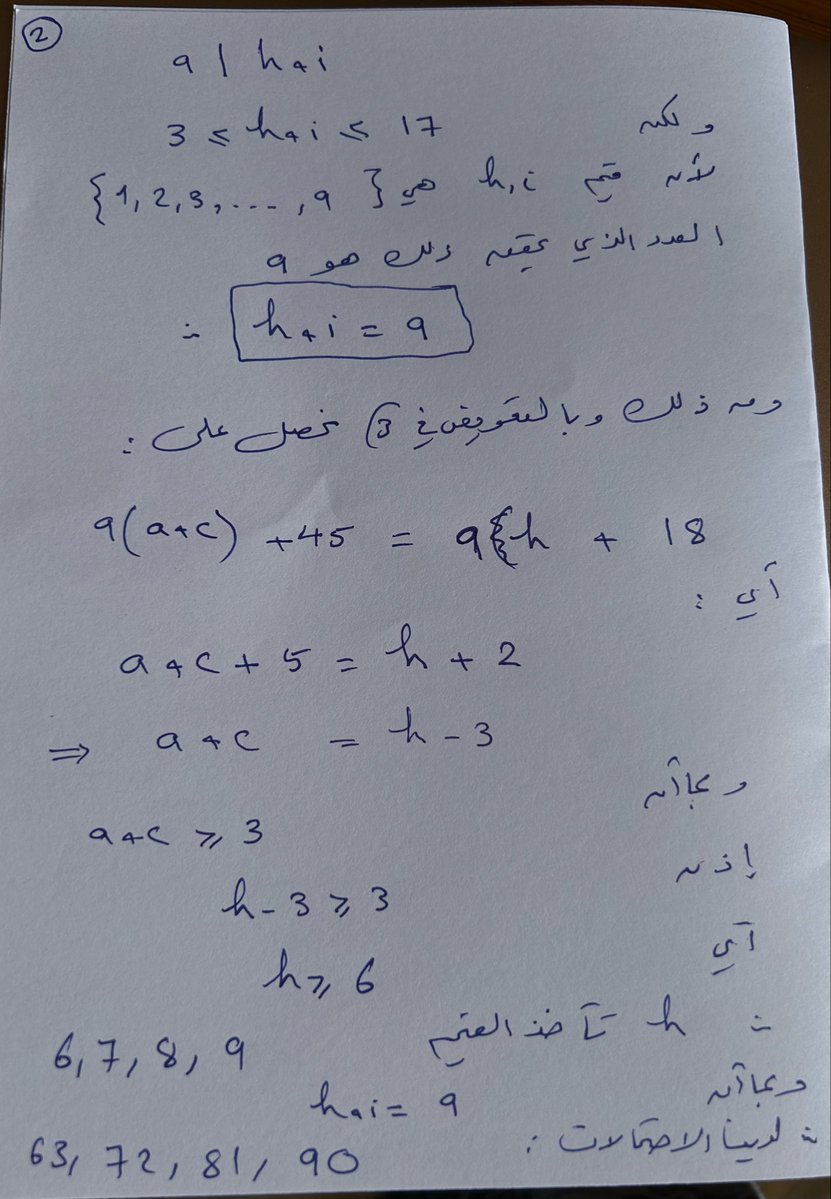 2
9 | h+i
ولكن 3 ≤ h+i ≤ 17
لأن قيم h,i هي {1, 2, 3, ..., 9}
العدد الذي يحقق ذلك هو 9
∴ h+i = 9
ومن ذلك وبالتعويض في (3 نحصل على :
9(a+c) + 45 = 9h + 18
أي :
a+c+5 = h+2
⇒ a+c = h-3
وبما أن
a+c ≥ 3
إذن
h-3 ≥ 3
أي
h ≥ 6
∴ h تأخذ القيم 6, 7, 8, 9
وبما أن h+i = 9
∴ لدينا الاحتمالات : 63, 72, 81, 90